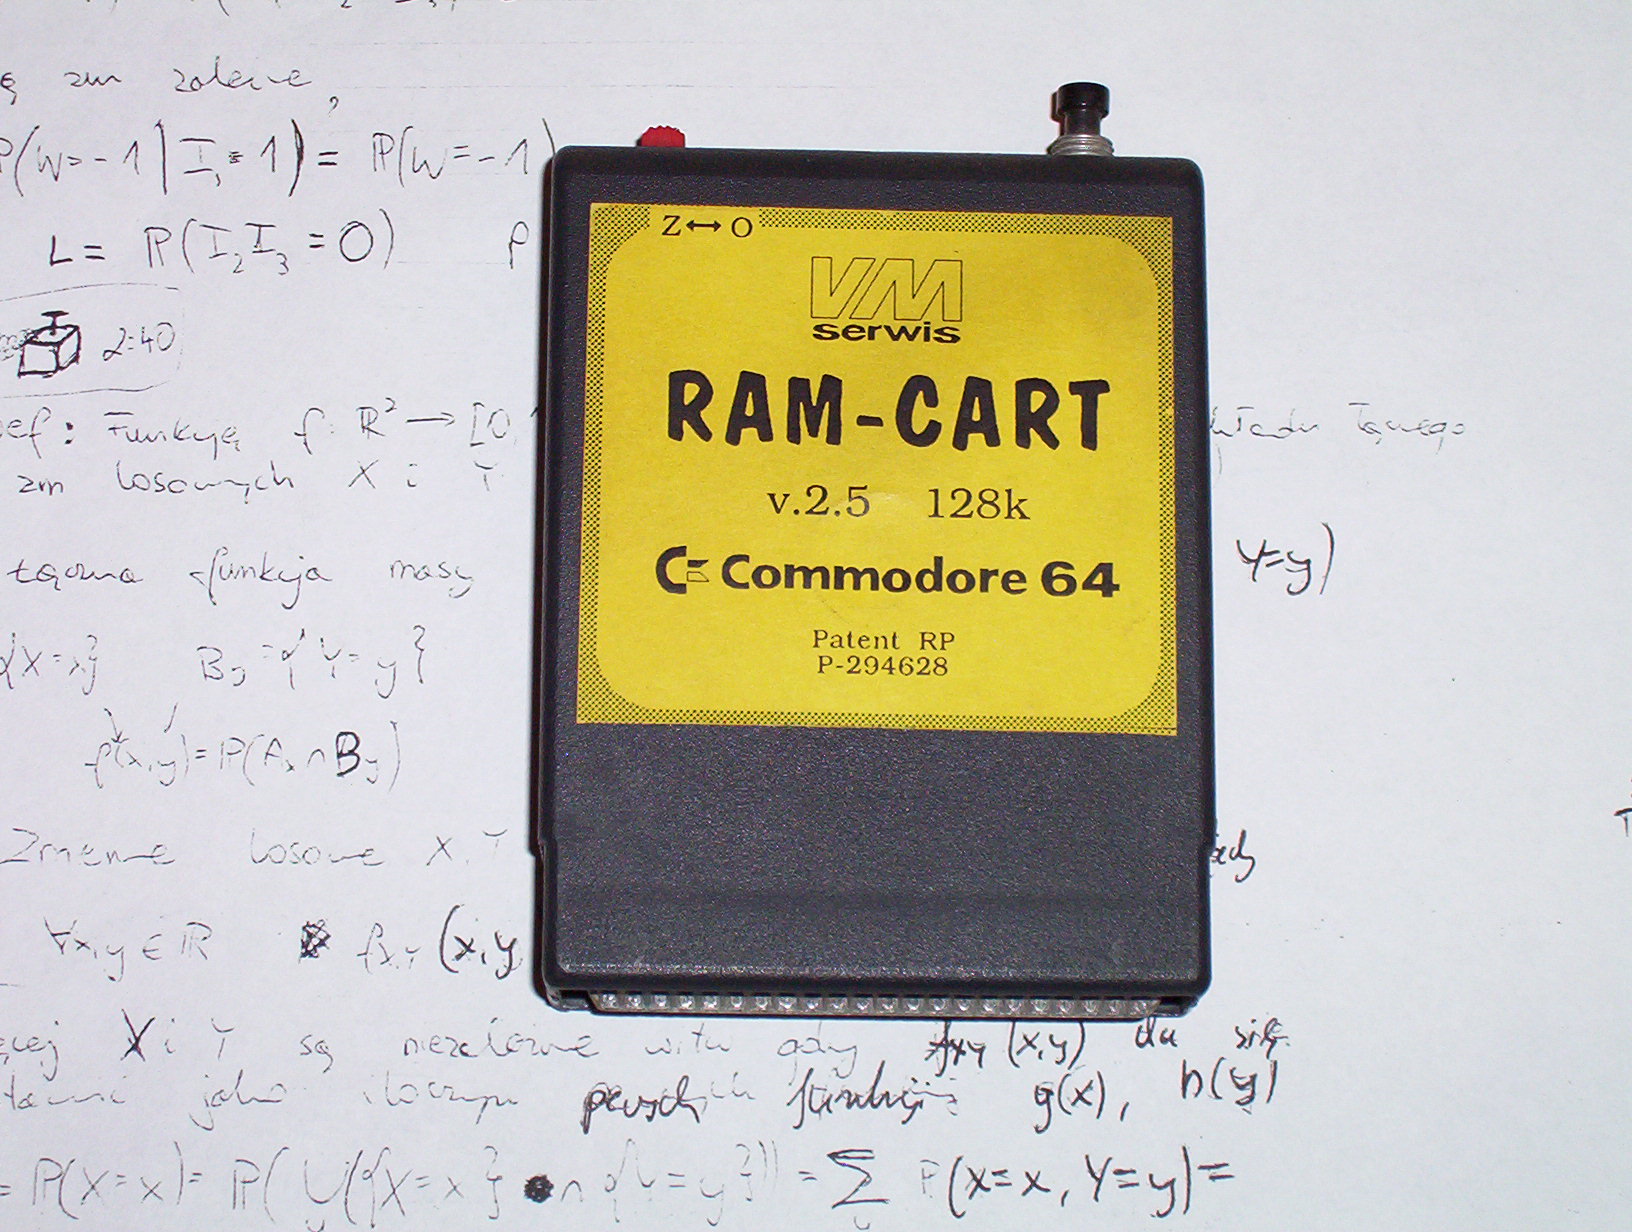 zm zależne,
P(W=-1 | I₁=1) = P(W=-1)
L = P(I₂I₃=0) P
2:40
Def: Funkcję f: ℝ² → [0,
łącznego
zm losowych X i Y
Łączna funkcja masy
Y=y)
{X=x} B_y = {Y=y}
f(x,y) = P(A_x ∩ B_y)
Zmienne losowe X, Y
∀x,y ∈ ℝ f_{X,Y}(x,y
X i Y są niezależne wtw gdy f_{XY}(x,y) da się
jako iloczyn pewnych funkcji g(x), h(y)
= P(X=x) = P(⋃_y({X=x} ∩ {Y=y})) = Σ_y P(X=x, Y=y) =
Z↔O
VM
serwis
RAM-CART
v.2.5 128k
C= Commodore 64
Patent RP
P-294628